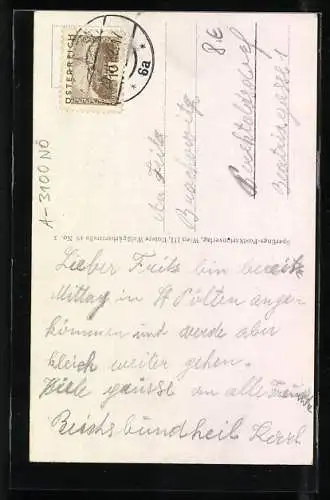 ÖSTERREICH
6a
A-3100 NÖ
8€
Fritz
Perchtoldsdorf
Beatrixgasse 1
Sperlings-Postkartenverlag, Wien III, Untere Weißgärberstraße 45 No. 3
Lieber Fritz bin bereits
Mittag in St Pölten ange-
kommen und werde aber
gleich weiter gehen.
Viele grüsse an alle Freunde
Reichsbundheil Karl